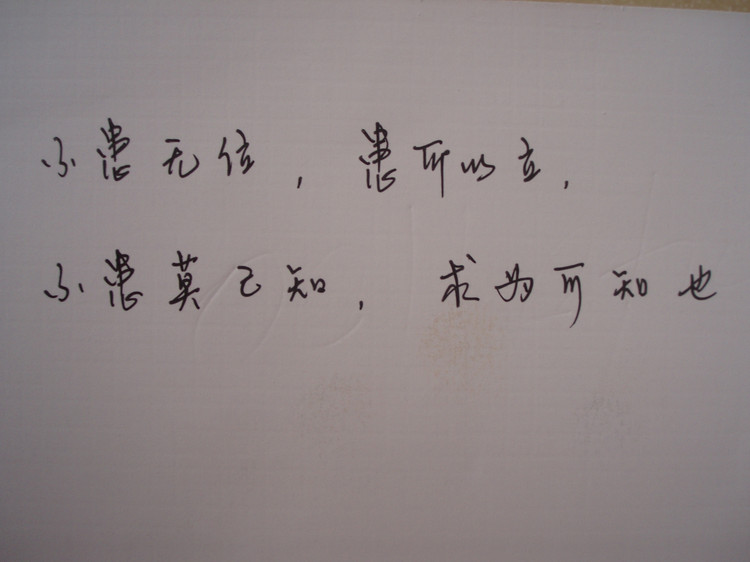 不患无位，患所以立，
不患莫己知，求为可知也